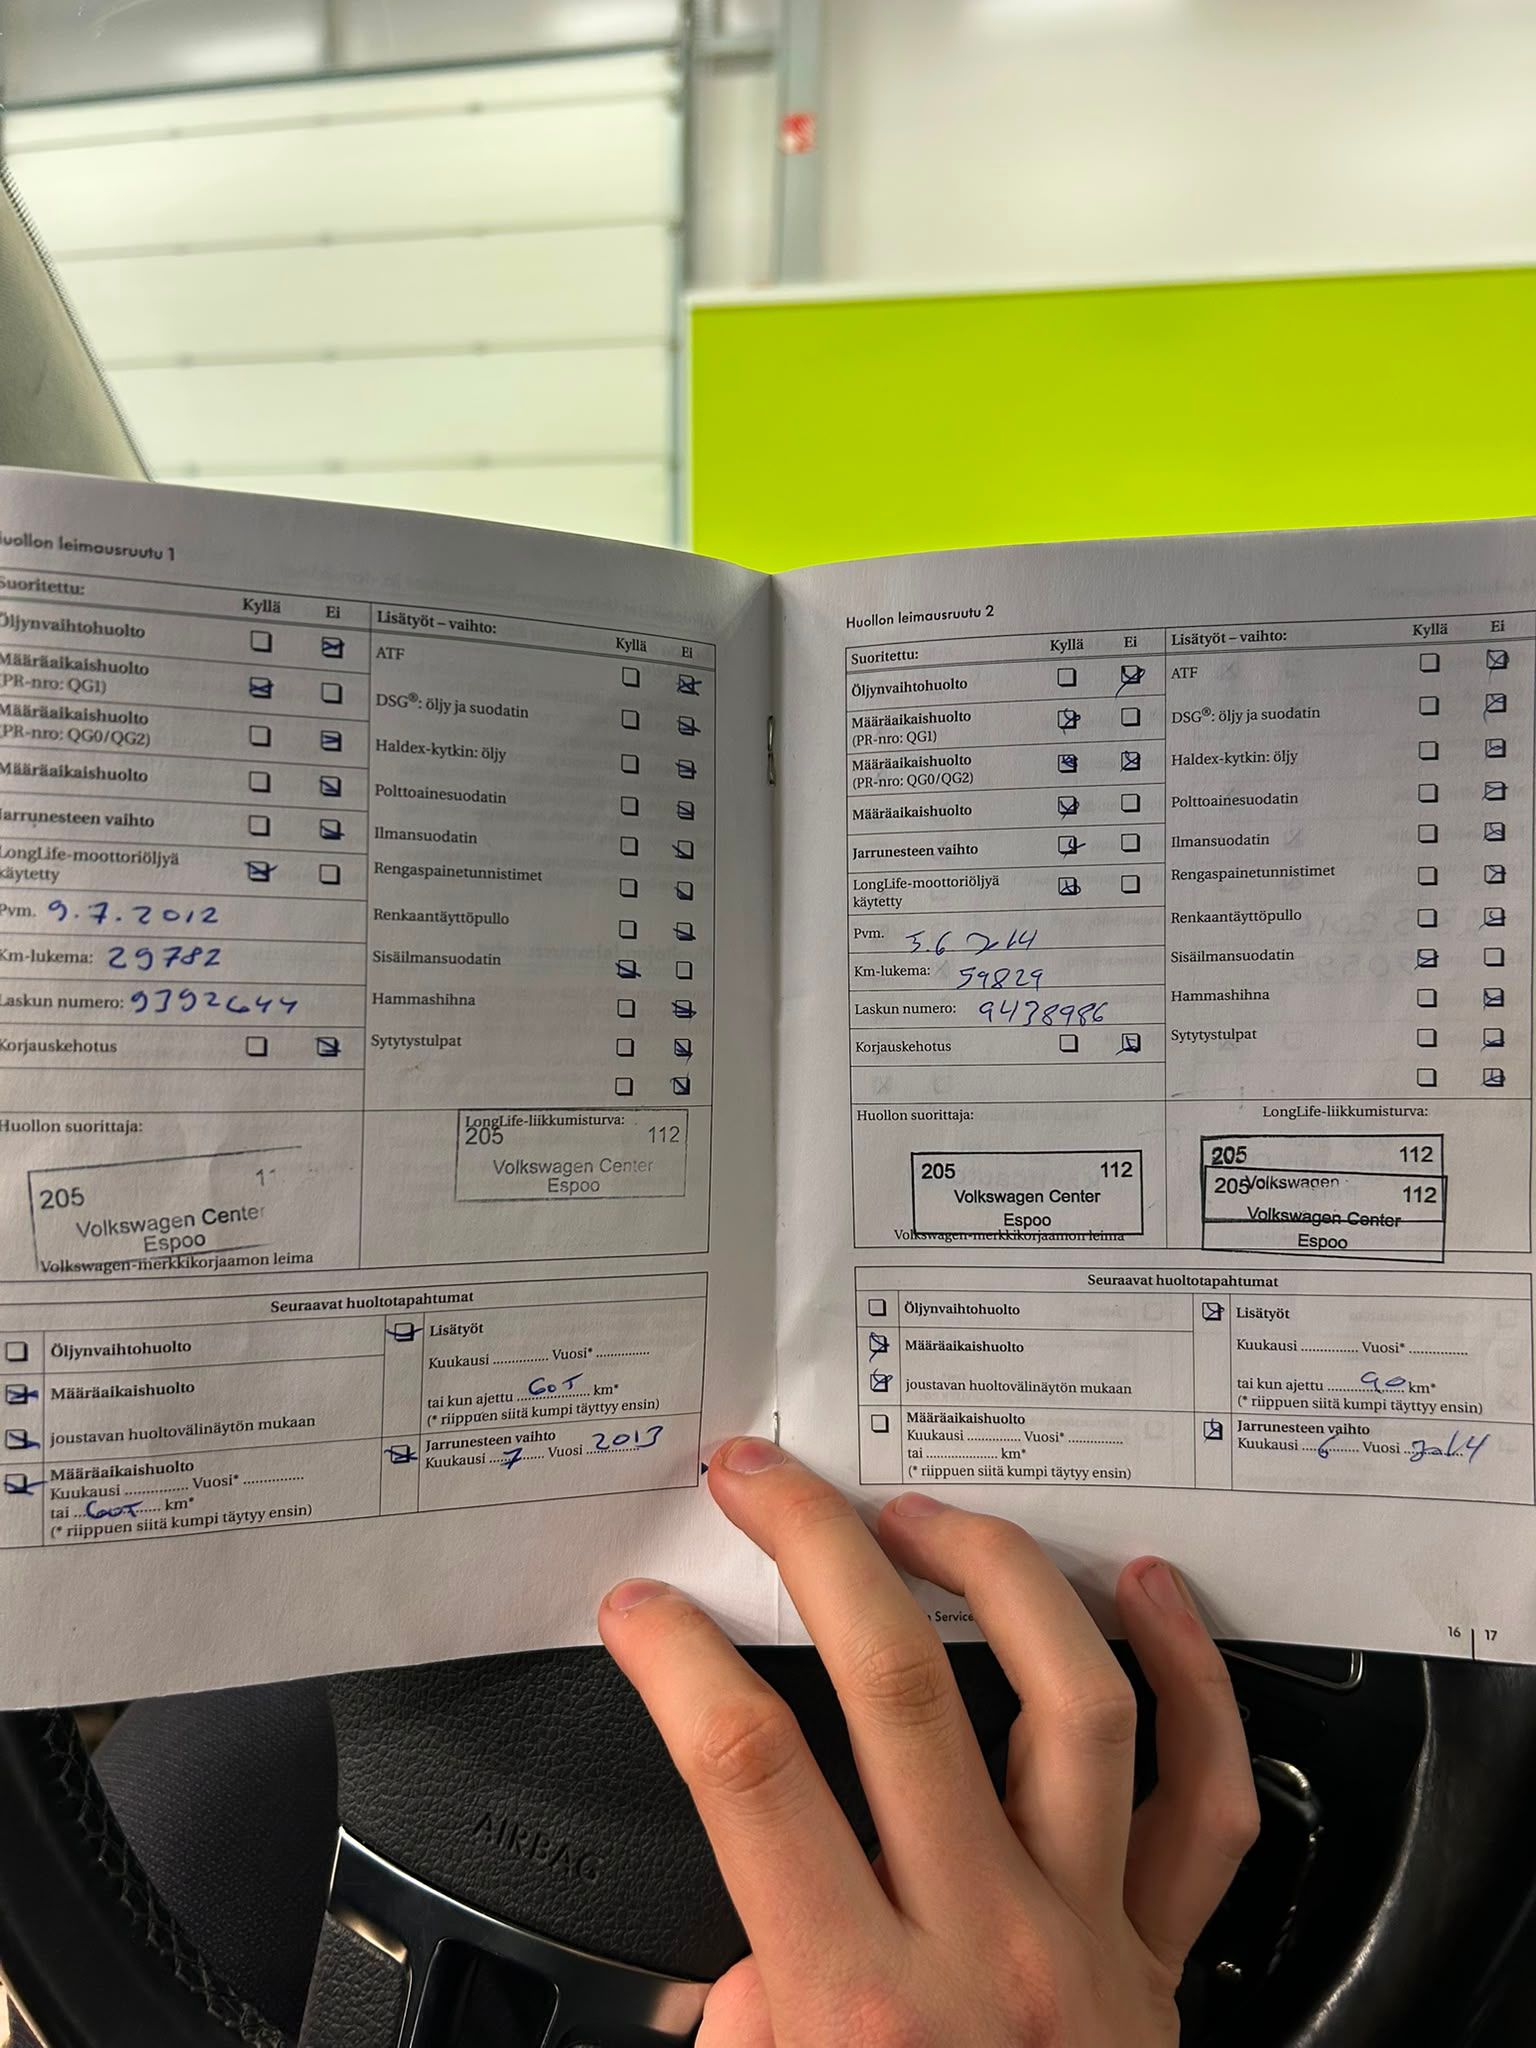 Huollon leimausruutu 1
Suoritettu: Kyllä Ei
Öljynvaihtohuolto
Määräaikaishuolto
(PR-nro: QG1)
Määräaikaishuolto
(PR-nro: QG0/QG2)
Määräaikaishuolto
Jarrunesteen vaihto
LongLife-moottoriöljyä
käytetty
Pvm. 9.7.2012
Km-lukema: 29782
Laskun numero: 9392644
Korjauskehotus
Lisätyöt – vaihto: Kyllä Ei
ATF
DSG®: öljy ja suodatin
Haldex-kytkin: öljy
Polttoainesuodatin
Ilmansuodatin
Rengaspainetunnistimet
Renkaantäyttöpullo
Sisäilmansuodatin
Hammashihna
Sytytystulpat
Huollon suorittaja:
205 11
Volkswagen Center
Espoo
Volkswagen-merkkikorjaamon leima
LongLife-liikkumisturva:
205 112
Volkswagen Center
Espoo
Seuraavat huoltotapahtumat
Öljynvaihtohuolto
Määräaikaishuolto
joustavan huoltovälinäytön mukaan
Määräaikaishuolto
Kuukausi .............. Vuosi* ..............
tai ... 60T ... km*
(* riippuen siitä kumpi täytyy ensin)
Lisätyöt
Kuukausi .............. Vuosi* ..............
tai kun ajettu ... 60T ... km*
(* riippuen siitä kumpi täyttyy ensin)
Jarrunesteen vaihto
Kuukausi ... 7 ... Vuosi 2013
Huollon leimausruutu 2
Suoritettu: Kyllä Ei
Öljynvaihtohuolto
Määräaikaishuolto
(PR-nro: QG1)
Määräaikaishuolto
(PR-nro: QG0/QG2)
Määräaikaishuolto
Jarrunesteen vaihto
LongLife-moottoriöljyä
käytetty
Pvm. 2014
Km-lukema: 59829
Laskun numero: 9438986
Korjauskehotus
Lisätyöt – vaihto: Kyllä Ei
ATF
DSG®: öljy ja suodatin
Haldex-kytkin: öljy
Polttoainesuodatin
Ilmansuodatin
Rengaspainetunnistimet
Renkaantäyttöpullo
Sisäilmansuodatin
Hammashihna
Sytytystulpat
Huollon suorittaja:
205 112
Volkswagen Center
Espoo
Volkswagen-merkkikorjaamon leima
LongLife-liikkumisturva:
205 112
Volkswagen
205 112
Volkswagen Center
Espoo
Seuraavat huoltotapahtumat
Öljynvaihtohuolto
Määräaikaishuolto
joustavan huoltovälinäytön mukaan
Määräaikaishuolto
Kuukausi .............. Vuosi* ..............
tai .............. km*
(* riippuen siitä kumpi täytyy ensin)
Lisätyöt
Kuukausi .............. Vuosi* ..............
tai kun ajettu ... 90 ... km*
(* riippuen siitä kumpi täyttyy ensin)
Jarrunesteen vaihto
Kuukausi ... 6 ... Vuosi 2014
Service
16 | 17
AIRBAG